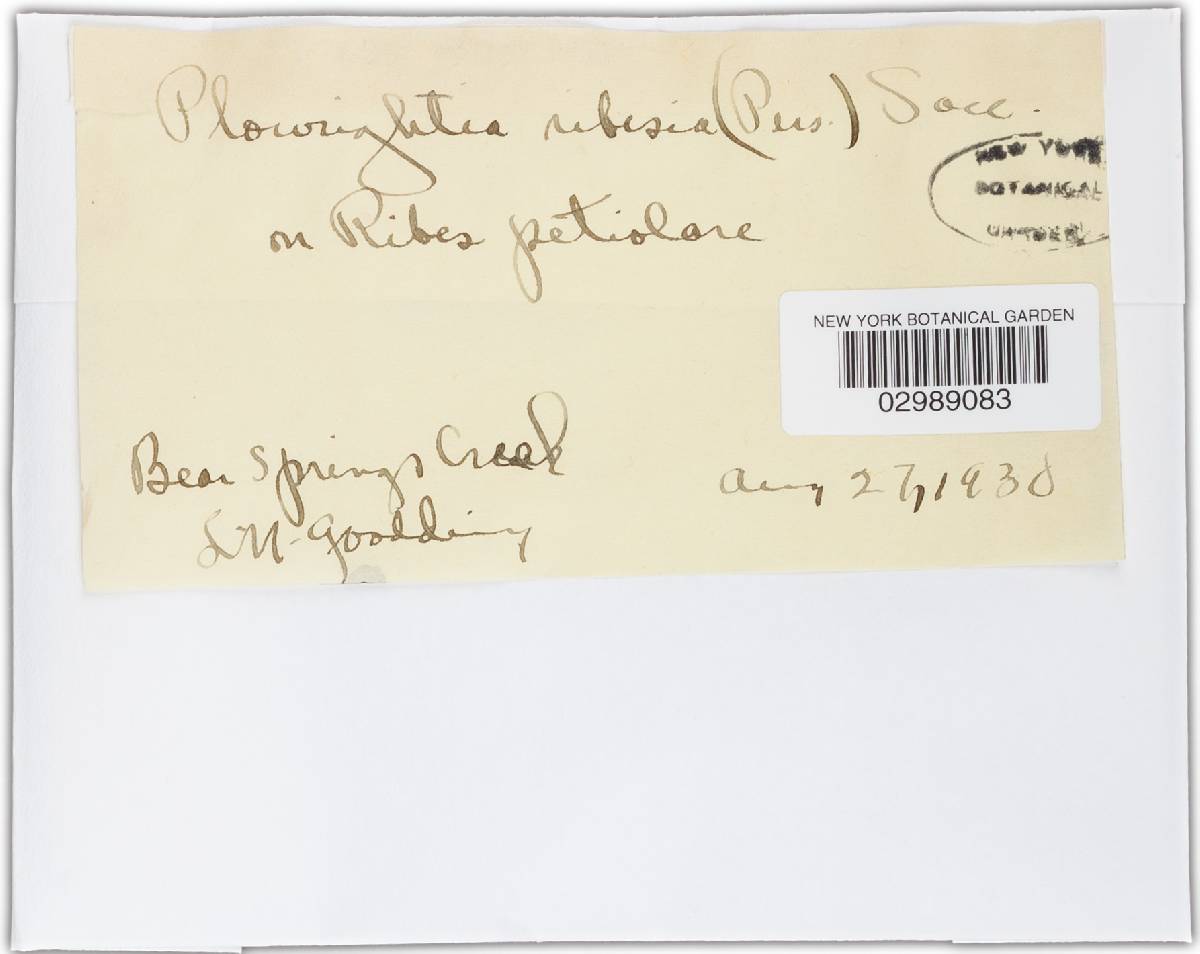 Plowrightia ribesia (Pers.) Sacc.
NEW YORK
BOTANICAL
GARDEN
on Ribes petiolare
NEW YORK BOTANICAL GARDEN
02989083
Bear Springs Creek
Aug 27, 1930
L N. Goodding